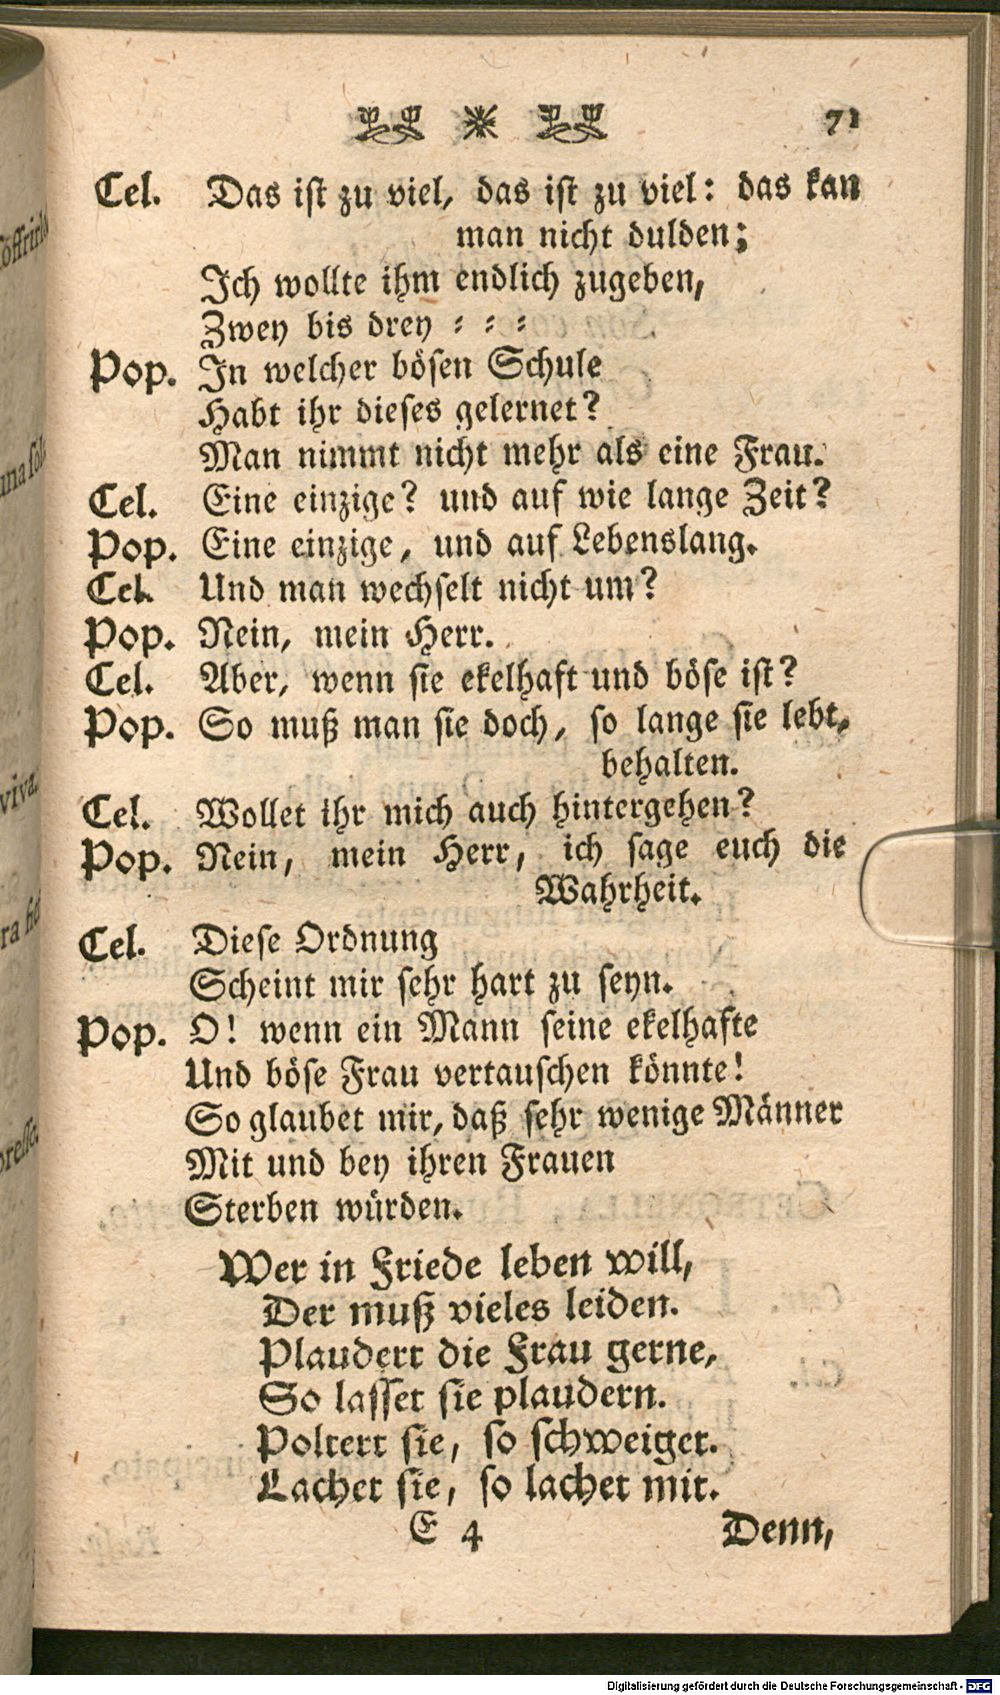 71
Cel. Das ist zu viel, das ist zu viel: das kan
man nicht dulden;
Ich wollte ihm endlich zugeben,
Zwey bis drey = = =
Pop. In welcher bösen Schule
Habt ihr dieses gelernet?
Man nimmt nicht mehr als eine Frau.
Cel. Eine einzige? und auf wie lange Zeit?
Pop. Eine einzige, und auf Lebenslang.
Cel. Und man wechselt nicht um?
Pop. Nein, mein Herr.
Cel. Aber, wenn sie ekelhaft und böse ist?
Pop. So muß man sie doch, so lange sie lebt,
behalten.
Cel. Wollet ihr mich auch hintergehen?
Pop. Nein, mein Herr, ich sage euch die
Wahrheit.
Cel. Diese Ordnung
Scheint mir sehr hart zu seyn.
Pop. O! wenn ein Mann seine ekelhafte
Und böse Frau vertauschen könnte!
So glaubet mir, daß sehr wenige Männer
Mit und bey ihren Frauen
Sterben würden.
Wer in Friede leben will,
Der muß vieles leiden.
Plaudert die Frau gerne,
So lasset sie plaudern.
Poltert sie, so schweiget.
Lachet sie, so lachet mit.
E 4 Denn,
Digitalisierung gefördert durch die Deutsche Forschungsgemeinschaft - DFG